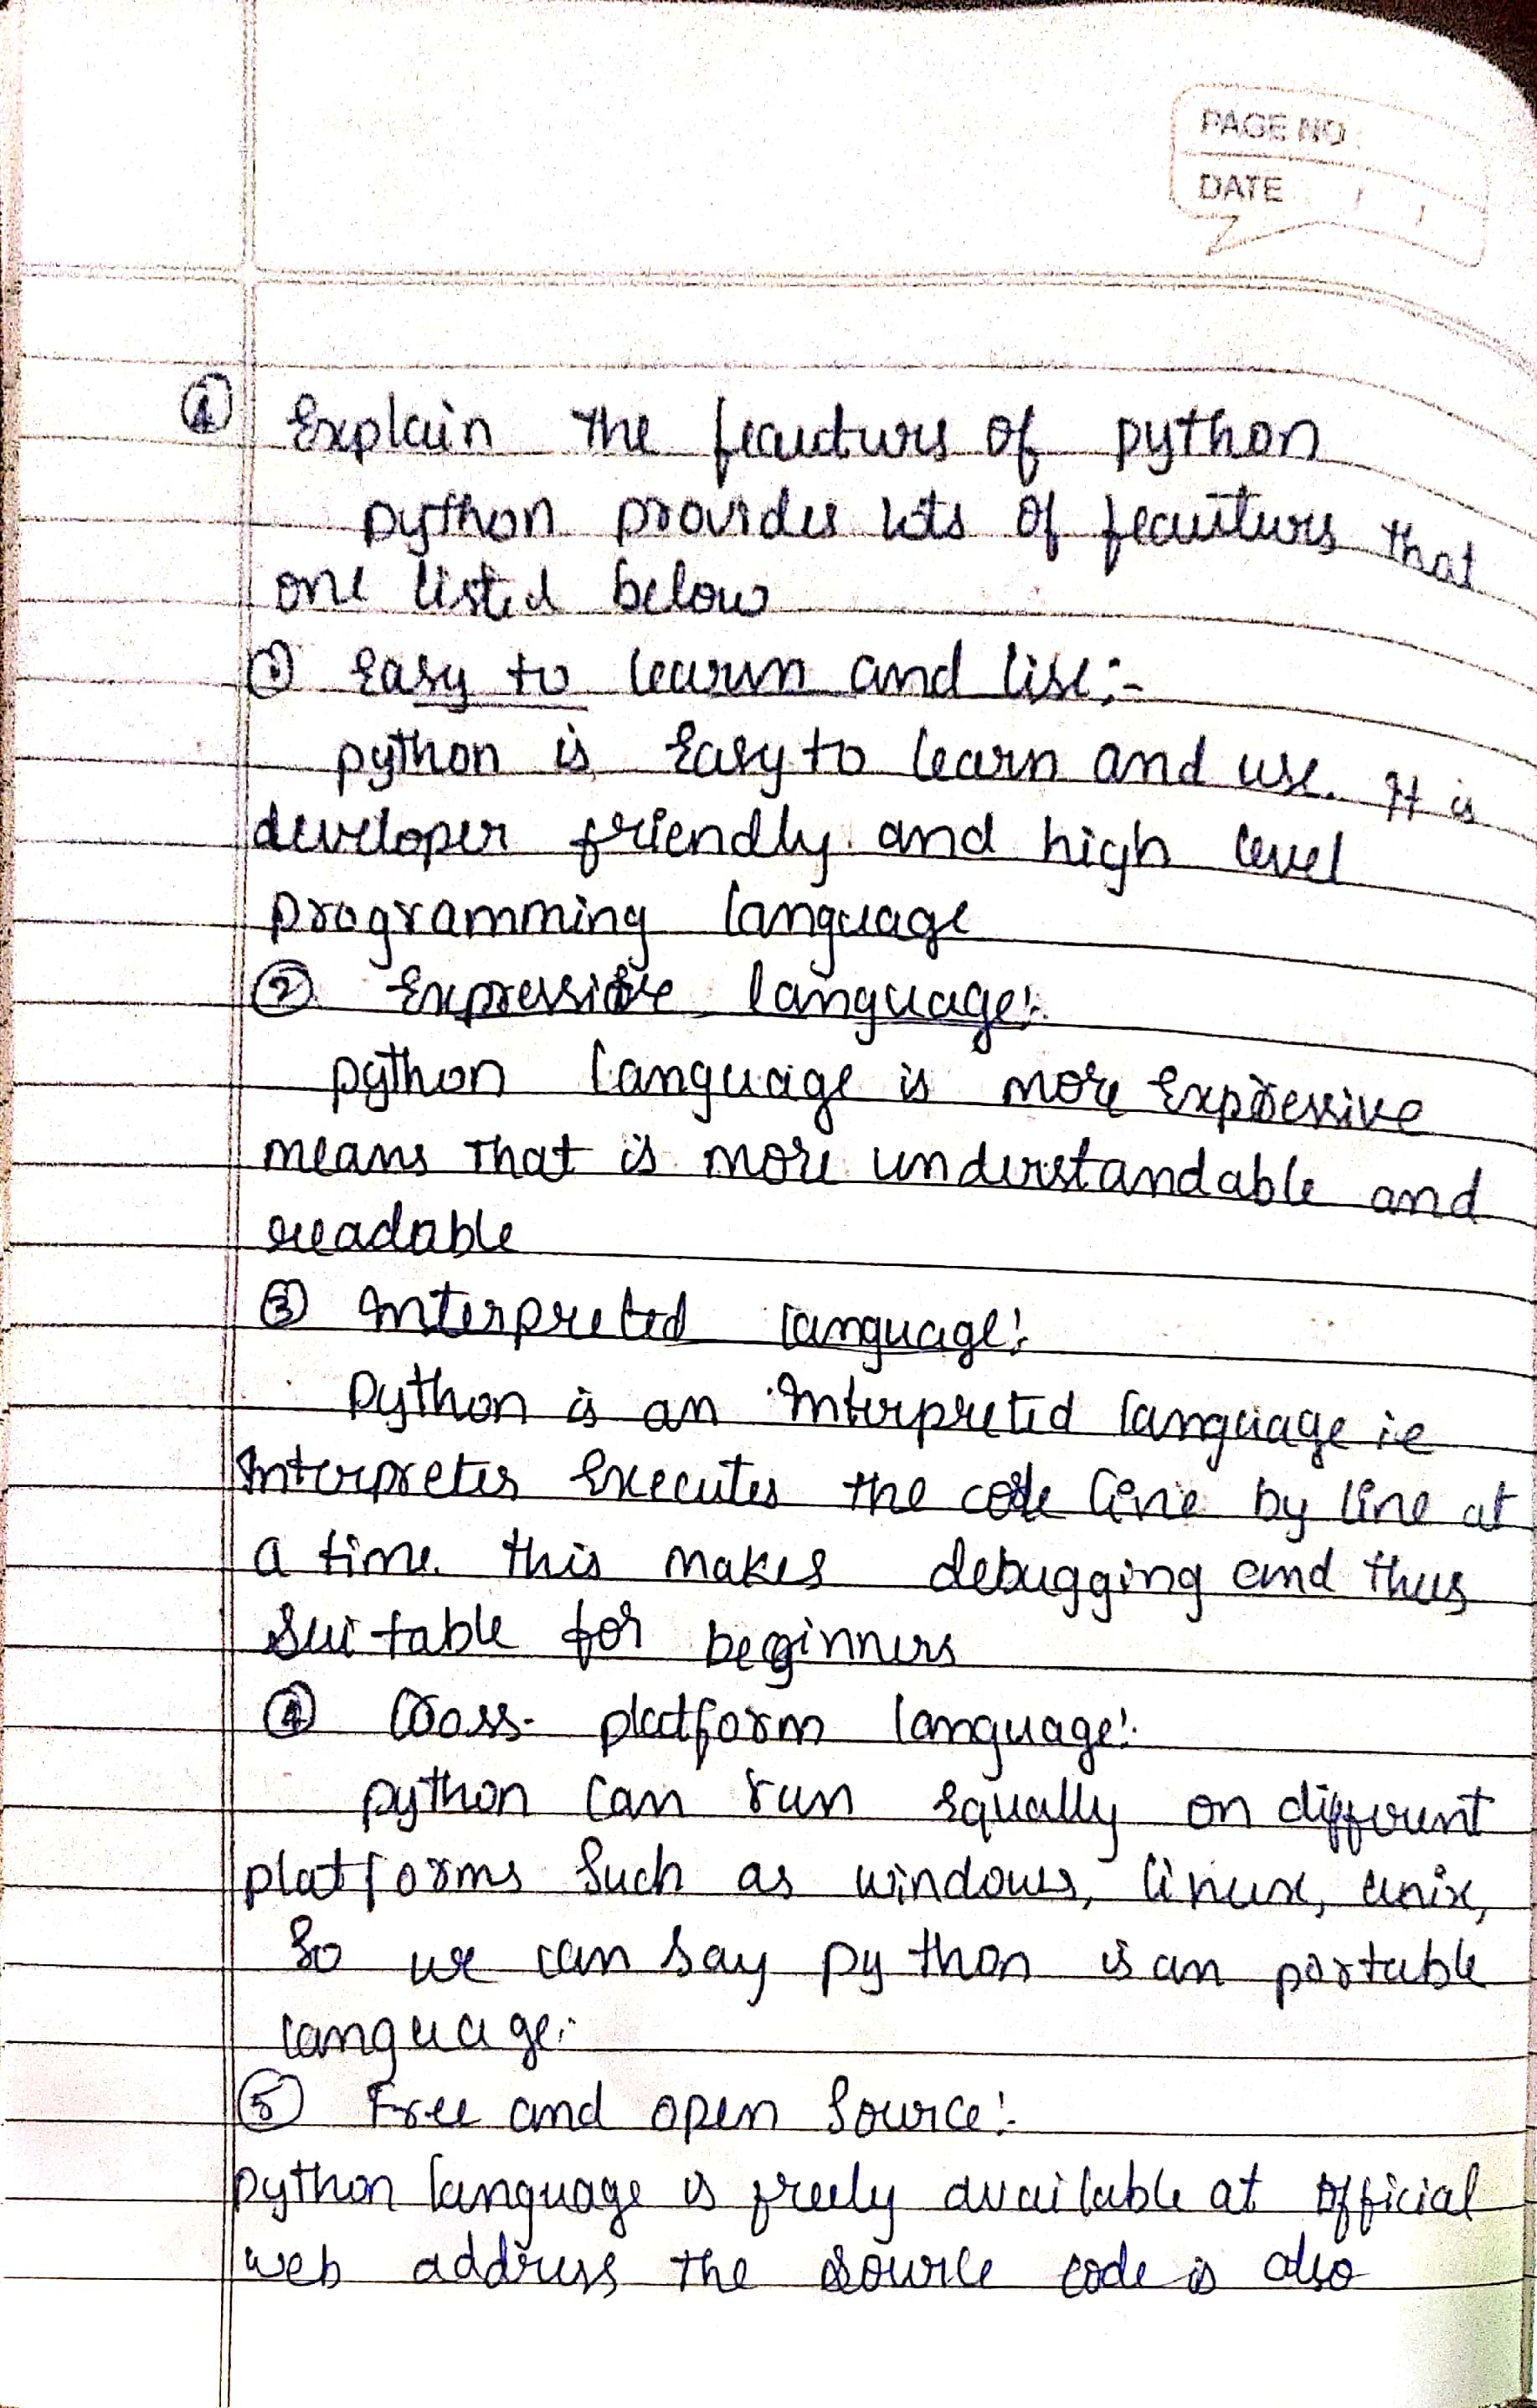 PAGE NO.
DATE / /
① Explain The feautures of python
python provides lots of feautures that
one listed below
① Easy to learn and use:-
python is Easy to learn and use. It is
developer friendly and high level
programming language
② Expressive language:-
python language is more Expressive
means That is more understandable and
readable
③ Interpreted language:-
Python is an Interpreted language ie
Interpreter Executes the code line by line at
a time. this makes debugging and thus
Suitable for beginners
④ Cross- platform language:-
python can run Equally on different
platforms Such as windows, linux, unix,
So we can say python is an portable
language.
⑤ Free and open Source:-
python language is freely available at official
web address the source code is also